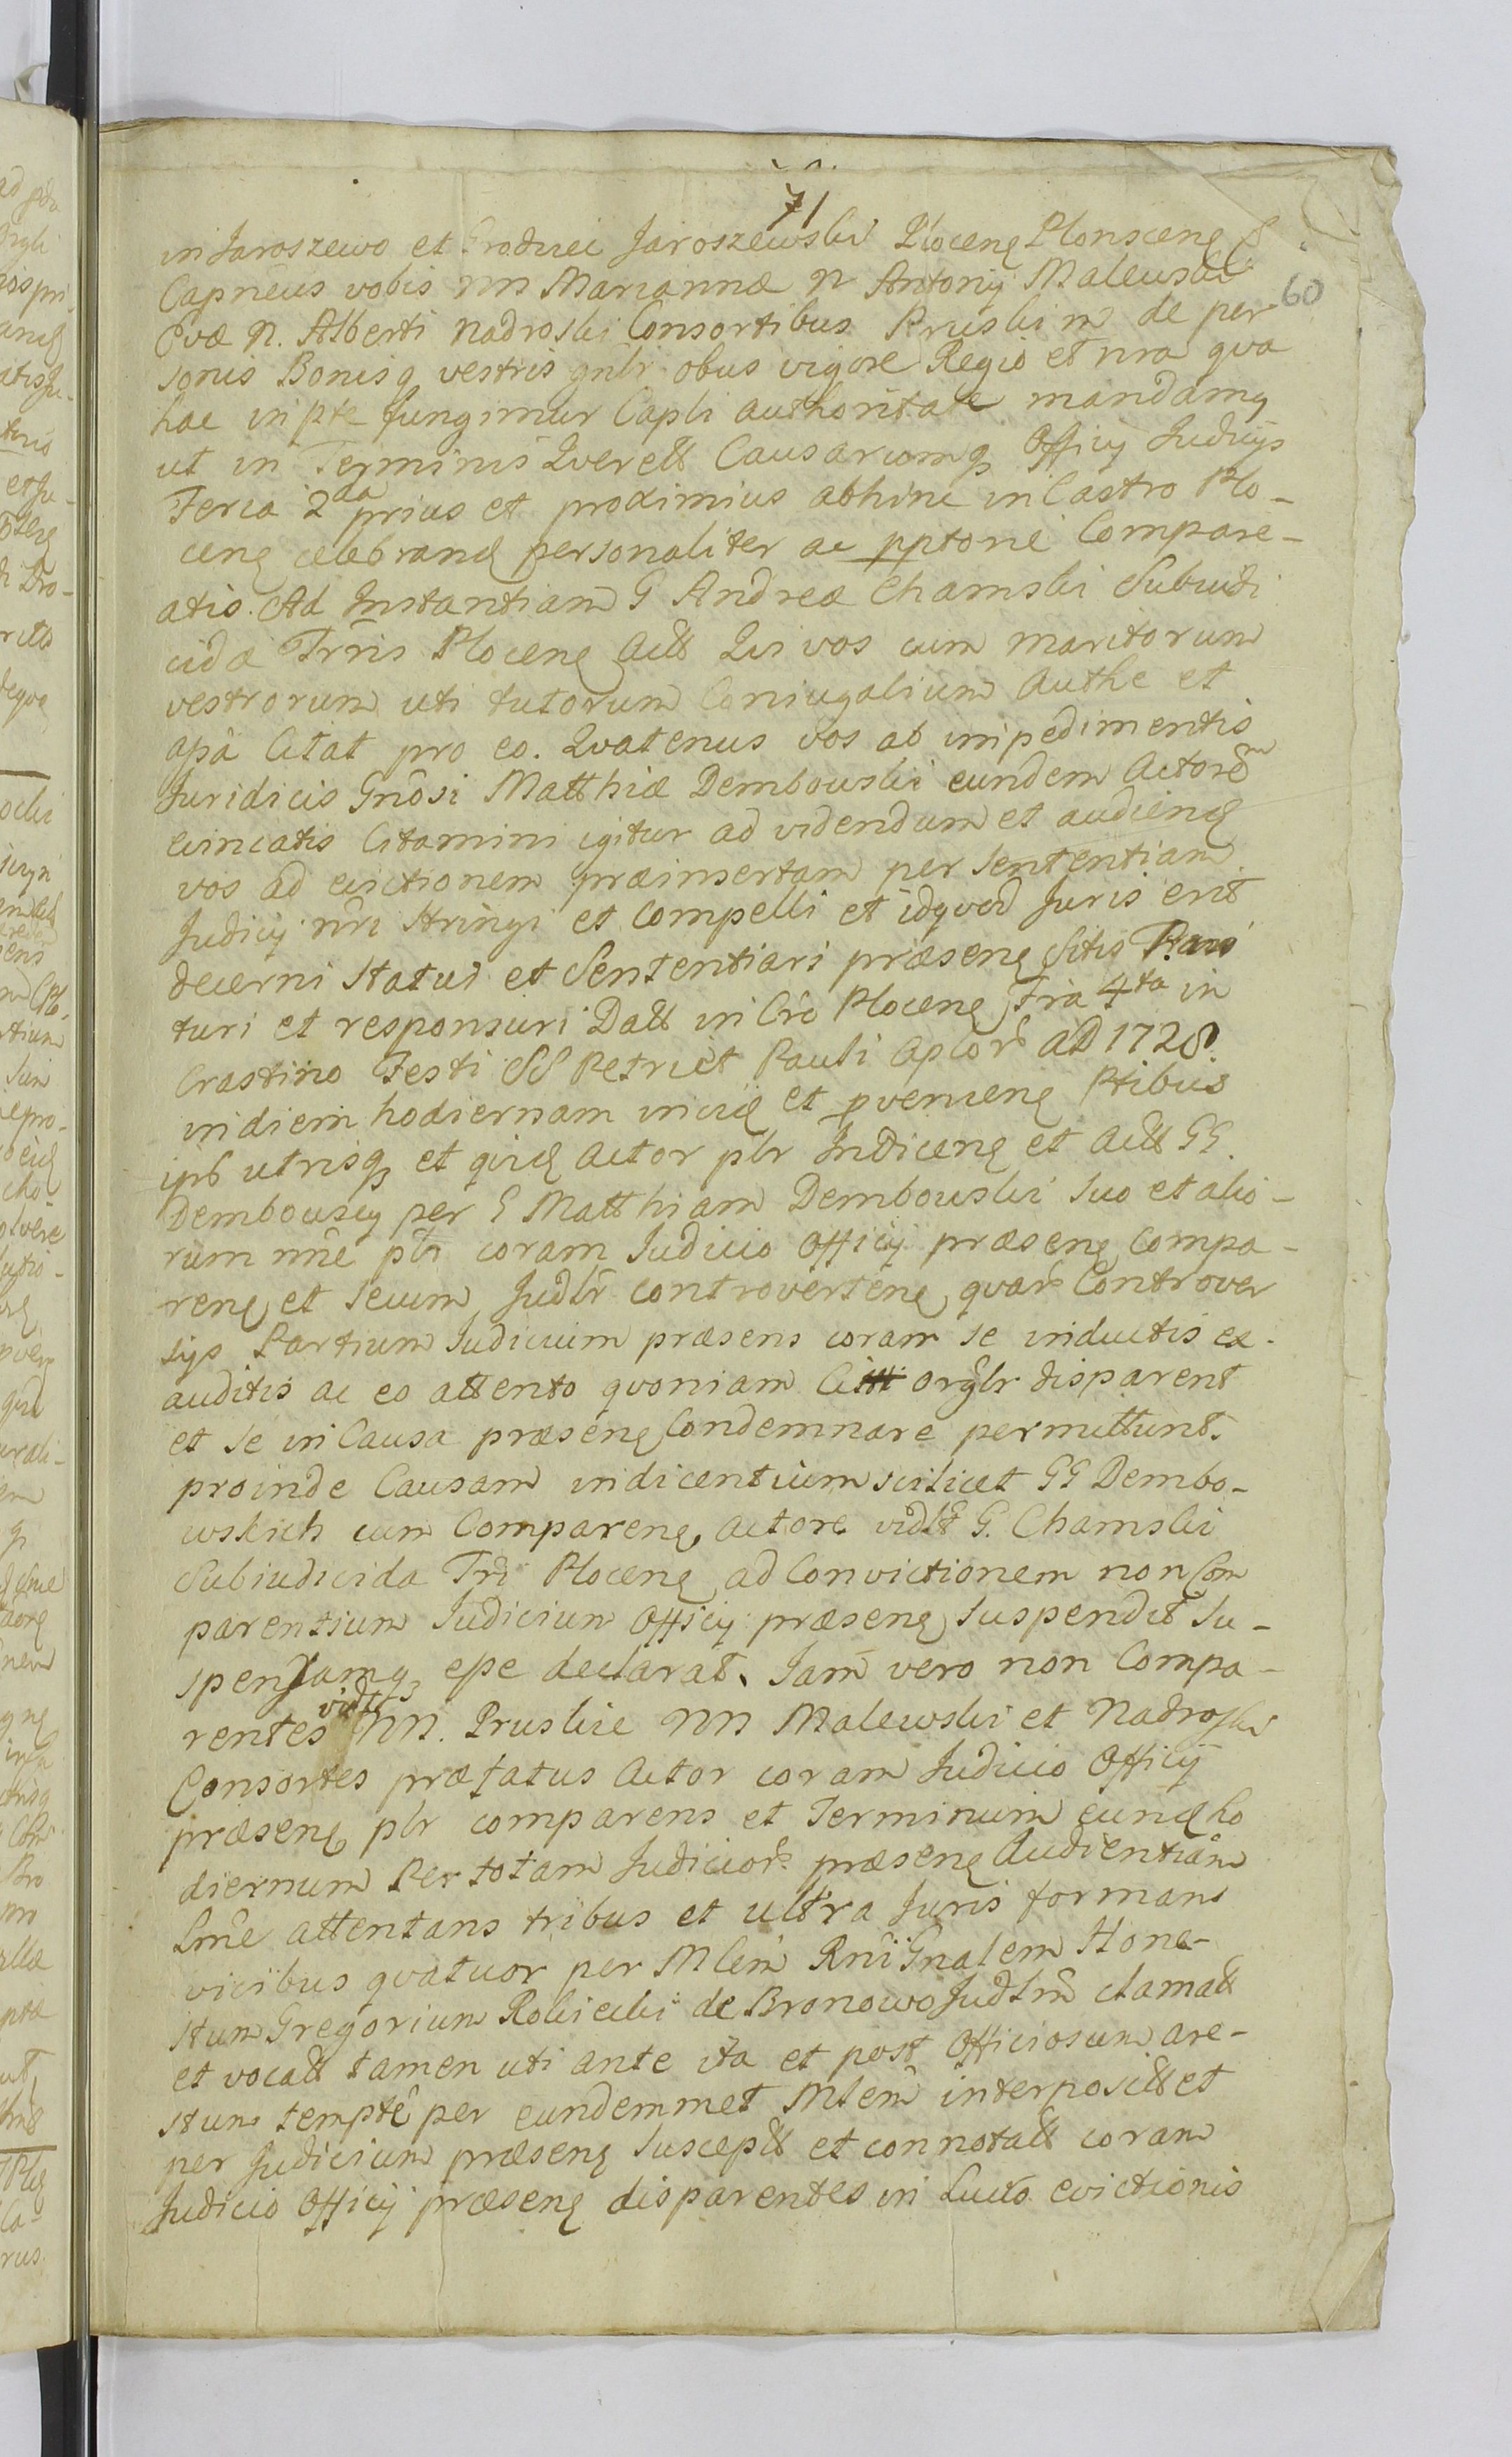 71
60
in Jaroszewo et Jaroszewski Plocen Plonscen
Capneus vobis NN Mariannæ N Antonij Malewski
Evæ N. Alberti Nadroski Consortibus Pruskim de per
sonis Bonisq vestris gnlr obus vigore Regio et nra qva
hac in pte fungimur Capli authoritate mandamq
ut in Terminis Qverell Causarumq Officij Judicijs
Feria 2da prius et proximius abhinc in Castro Plo-
cen celebrand personaliter ac pptorie Compare-
atis. Ad Instantiam G Andreæ Chamski Subiudi
cidæ Trris Plocen Act Qui vos cum maritorum
vestrorum uti tutorum Coniugalium Authe et
assa Citat pro eo. Qvatenus vos ab impedimentis
Juridicis Gnosi Matthiæ Dembowski eundem Actorem
evincatis Citamini igitur ad videndum et audiend
vos ad evictionem præinsertam per sententiam
Judicij nri stringi et compelli et idqvod Juris erit
decerni statui et Sententiari præsens Sitis Pari
turi et responsuri Datt in Cro Plocen Fria 4ta in
Crastino Festi SS Petri et Pauli Aplor AD 1728.
in diem hodiernam incid et pvenien Ptibus
ipss utrisq et qvid Actor plr Indicens et Act GG.
Dembowscy per G Matthiam Dembowski suo et alio-
rum nne plr coram Judicio Officij præsen compa-
ren et secum Judlr controverten qvar Controver
sijs Partium Judicium præsens coram se inductis ex-
auditis ac eo attento qvoniam Citti orglr disparent
et se in Causa præsen Condemnare permittunt.
proinde Causam indicentium scilicet GG Dembo-
wskich cum Comparen Actore vidlt G. Chamski
Subiudicida Tri Plocen ad Convictionem non Com
parentium Judicium Officij præsen suspendit Su-
spensamq esse declarat. Jam vero non Compa-
rentes vidlt NN. Pruskie NN Malewski et Nadroski
Consortes præfatus Actor coram Judicio Officij
præsen plr comparens et Terminum eund ho
diernum Per totam Judicior præsen Audientiam
Lme attentans tribus et ultra Juris formam
vicibus qvatuor per Mlem Rni Gnalem Hone-
stum Gregorium Robicki de Bronowo Judlm clamatt
et vocatt tamen uti ante ita et post Officiosum are-
stum tempte per eundemmet Mlem interposit et
per Judicium præsen suscept et connotatt coram
Judicio Officij præsen disparentes in Lucro evictionis